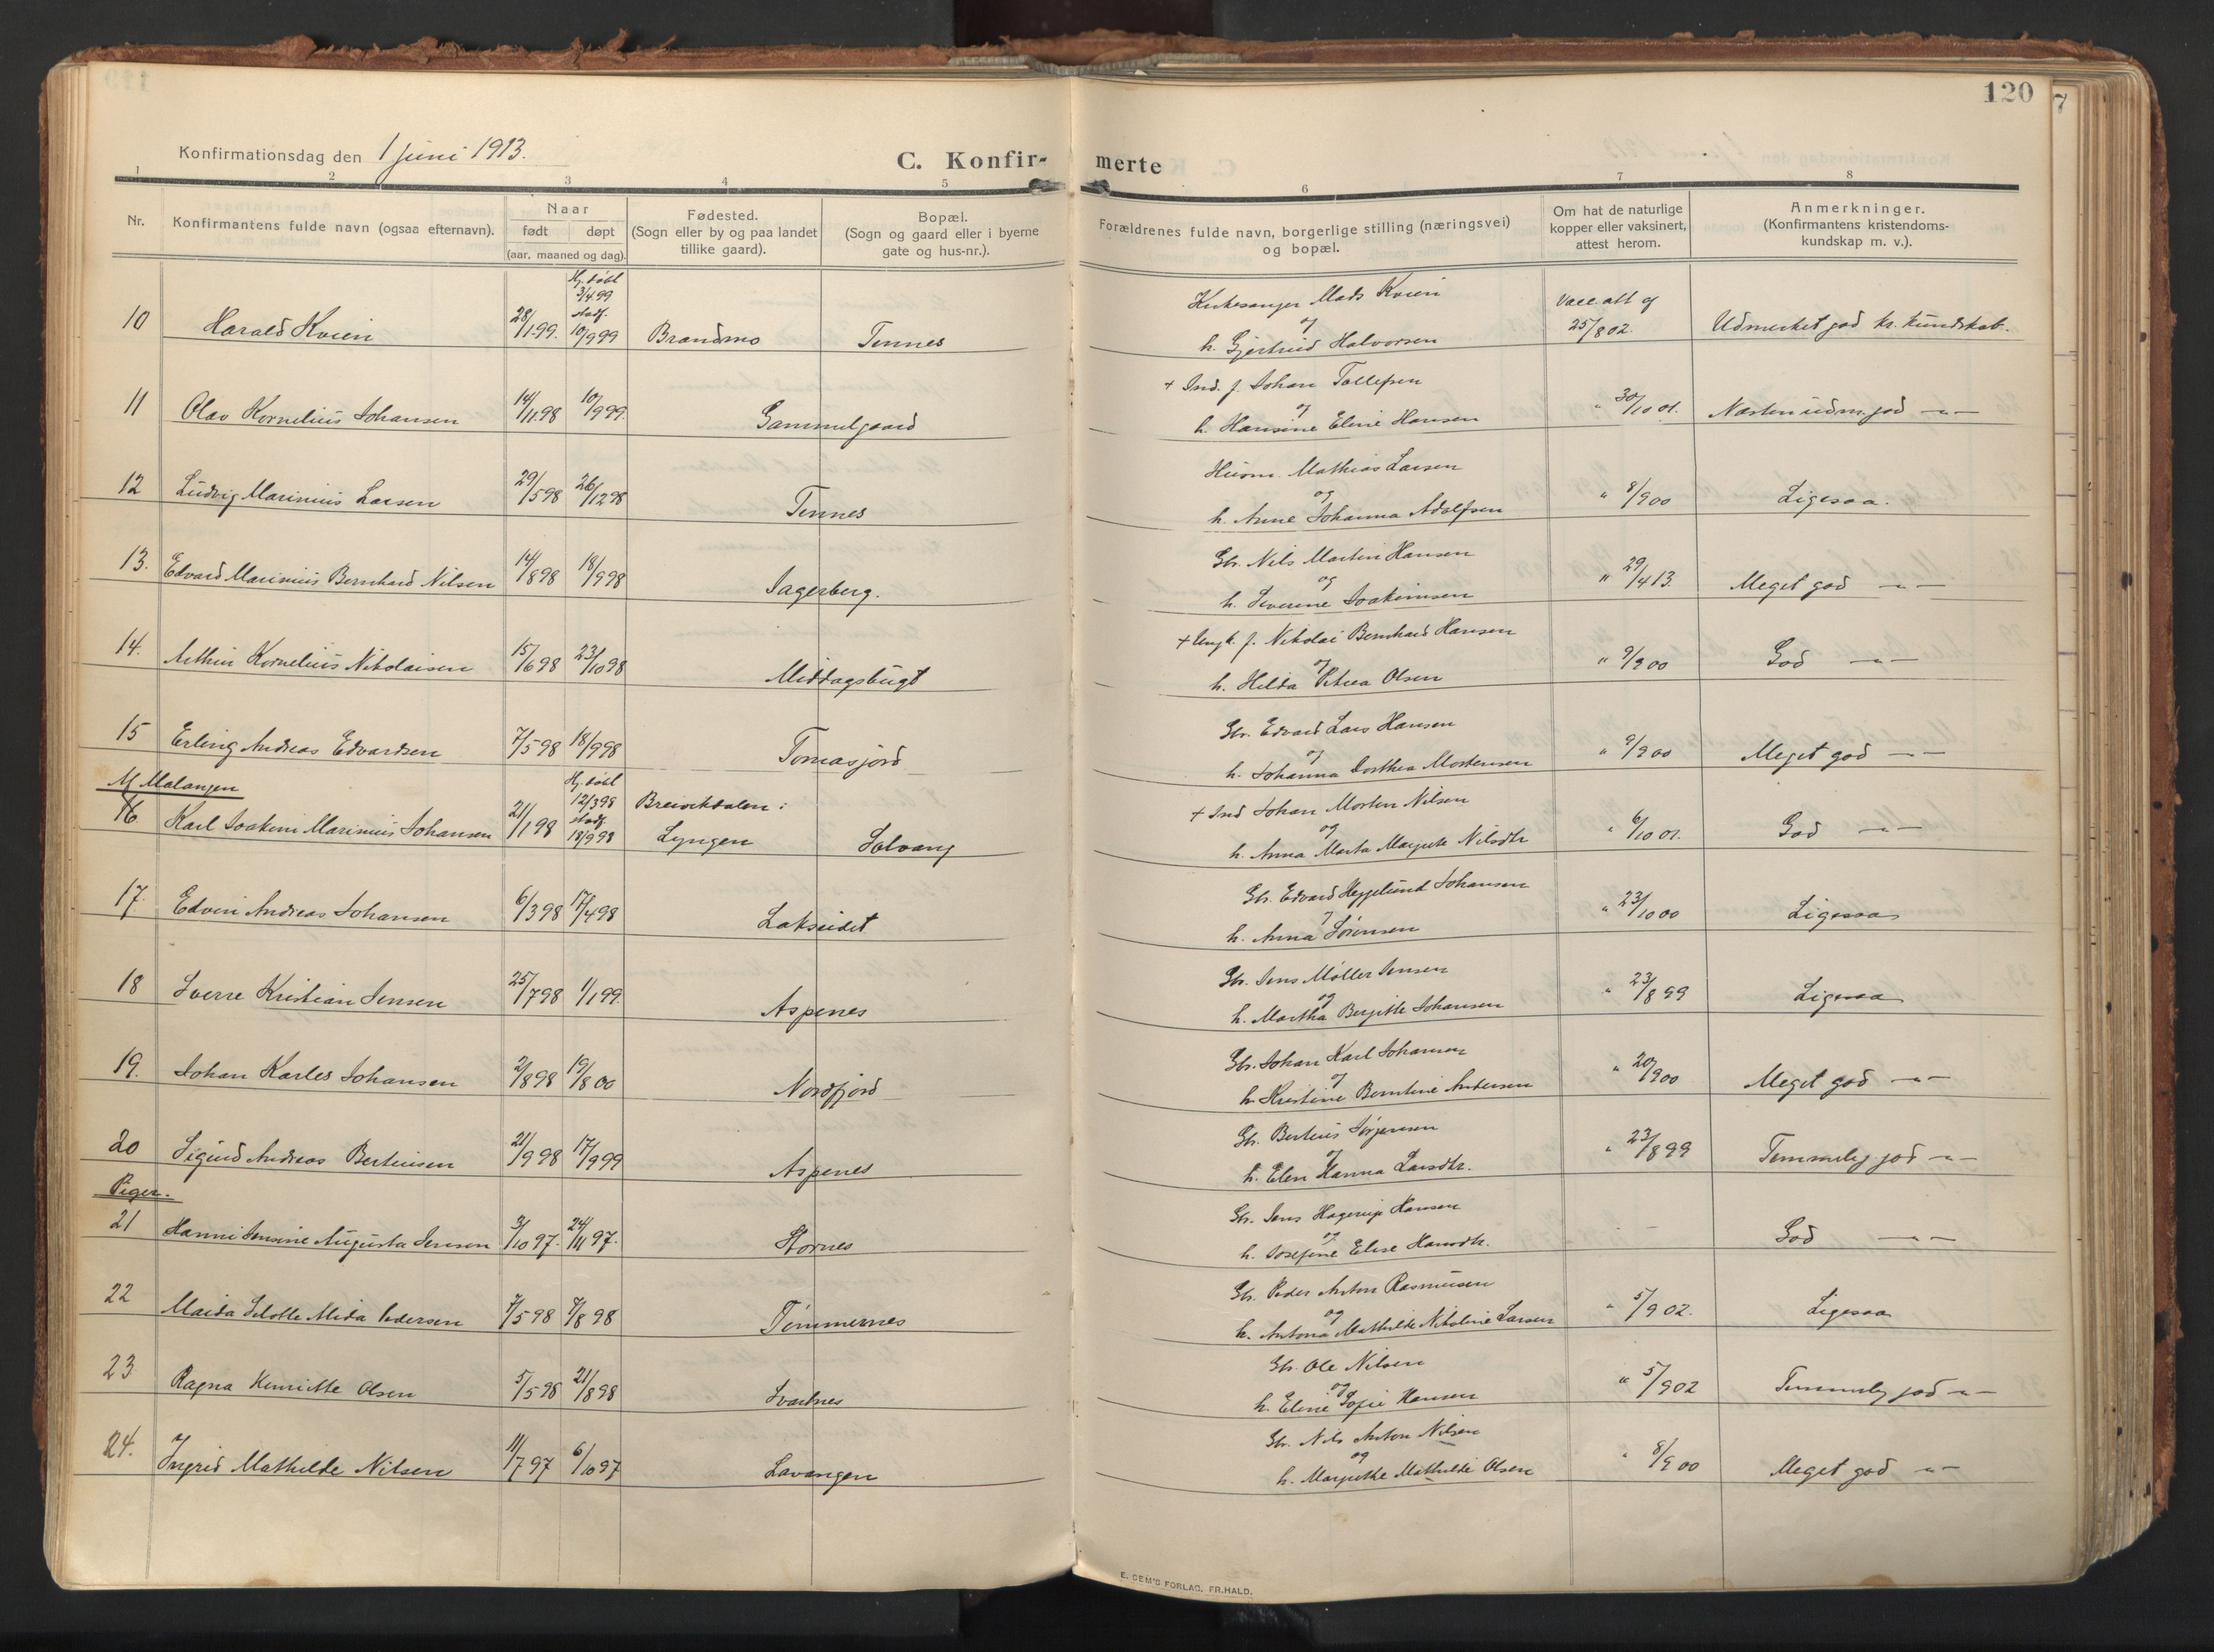 120
7
Konfirmationsdag den 1 juni 1913.
C. Konfir-
merte
1 2 3 4 5 6 7 8
Nr.
Konfirmantens fulde navn (ogsaa efternavn).
Naar
født døpt
(aar, maaned og dag).
Fødested.
(Sogn eller by og paa landet
tillike gaard).
Bopæl.
(Sogn og gaard eller i byerne
gate og hus-nr.).
Forældrenes fulde navn, borgerlige stilling (næringsvei)
og bopæl.
Om hat de naturlige
kopper eller vaksinert,
attest herom.
Anmerkninger.
(Konfirmantens kristendoms-
kundskap m. v.).
Hj. døbt
3/4 99
stadf.
10 Harald Kvien 28/1 99. 10/9 99 Brandmo Tennes
Kirkesanger Mads Kvien
og
h. Gjertrud Halvorsen
Vacc. att af
25/8 02.
Udmerket god kr. kundskab.
11 Olav Kornelius Johansen 14/11 98 10/9 99. Gammelgaard
+ Ind. f. Johan Tollefsen
og
h. Hansine Eline Hansen
" 30/10 01. Næsten udm. god -"-
12 Ludvig Marinius Larsen 29/5 98 26/12 98 Tennes
Husm. Mathias Larsen
og
h. Anne Johanna Adolfsen
" 8/9 00 Ligesaa.
13. Edvard Marinius Bernhard Nilsen 14/8 98 18/9 98 Sagerberg.
Gbr. Nils Martin Hansen
og
h. Severine Joakimsen
" 29/4 13. Meget god -"-
14. Arthur Kornelius Nikolaisen 15/6 98 23/10 98 Middagsbugt
+ Ungk. f. Nikolai Bernhard Hansen
og
h. Hilda Petrea Olsen
" 9/9 00 God -"-
15 Erling Andreas Edvardsen 7/5 98 18/9 98 Tomasjord
Gbr. Edvard Lars Hansen
og
h. Johanna Dorthea Mortensen
" 9/9 00 Meget god -"-
M Malangen
Hj. døbt
12/3 98
stadf.
16 Karl Joakim Marinius Johansen 21/1 98 18/9 98 Breivikdalen i
Lyngen Solvang
+ Ind Johan Morten Nilsen
og
h. Anna Marta Margrete Nilsdtr
" 6/10 01. God -"-
17. Edvin Andreas Johansen 6/3 98 17/4 98 Lakseidet
Gbr. Edvard Heggelund Johansen
og
h. Anna Sørensen
" 23/10 00 Ligesaa
18 Sverre Kristian Jensen 25/7 98 1/1 99. Aspenes
Gbr. Jens Møller Jensen
og
h. Martha Bergitte Johansen
" 23/8 99 Ligesaa
19. Johan Karles Johansen 2/8 98 19/8 00 Nordfjord
Gbr. Johan Karl Johansen
og
h. Kristine Berntine Andersen
" 20/9 00 Meget god -"-
20 Sigurd Andreas Berteusen 21/9 98 17/9 99 Aspenes
Gbr. Berteus Jørgensen
og
h. Elen Hanna Larsdtr.
" 23/8 99 Temmelig god -"-
Piger.
21 Hanni Jensine Augusta Jensen 3/10 97. 24/11 97. Stornes
Gbr. Jens Hagerup Hansen
og
h. Josefine Elise Hansdtr.
- - God -"-
22 Maida Selotte Mida Pedersen 7/5 98 7/8 98 Tømmernes
Gbr. Peder Anton Rasmussen
og
h. Antona Mathilde Nikoline Larsen
" 5/9 02. Ligesaa
23 Ragna Henriette Olsen 5/5 98 21/8 98 Svartnes
Gbr. Ole Nilsen
og
h. Eline Sofie Hansen
" 5/9 02 Temmelig god -"-
24. Ingrid Mathilde Nilsen 11/7 97 6/10 97 Lavangen
Gbr. Nils Anton Nilsen
og
h. Margrethe Mathilde Olsen
" 8/9 00 Meget god -"-
E. SEM'S FORLAG, FR.HALD.